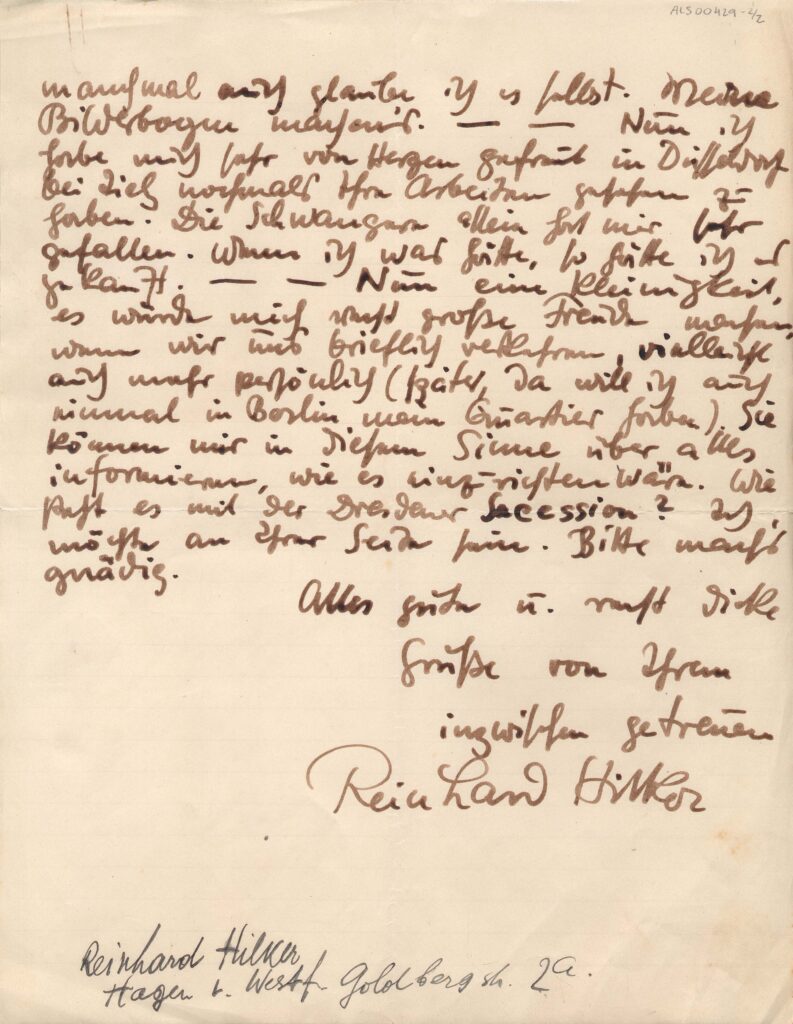 ALS00429-2/2
manchmal auch glaube ich es selbst. Meine
Bilderbogen machen's. — — Nun ich
habe mich sehr von Herzen gefreut in Düsseldorf
bei Dietz nochmals Ihre Arbeiten gesehen zu
haben. Die Schwangere allein hat mir sehr
gefallen. Wenn ich was hätte, so hätte ich es
gekauft. — — Nun eine Kleinigkeit,
es würde mich recht große Freude machen,
wenn wir uns brieflich verkehren, vielleicht
auch mehr persönlich (später, da will ich auch
einmal in Berlin mein Quartier haben). Sie
können mir in diesem Sinne über alles
informieren, wie es einzurichten wäre. Wie
paßt es mit der Dresdener Secession? Ich
möchte an Ihrer Seite sein. Bitte machts
gnädig.
Alles gute u. recht dicke
Grüße von Ihrem
inzwischen getreuen
Reinhard Hilker
Reinhard Hilker
Hagen i. Westf. Goldbergstr. 2a.